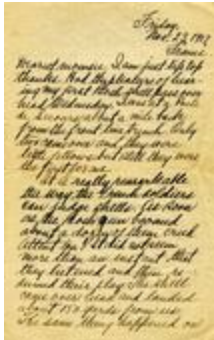 Friday
Nov. 23, 1917
France
Dearest mommie. I am just tip top
thanks. Had the pleasure of hear-
ing my first Boche shell pass over
head Wednesday. I was at a
about a mile back
from the front line trench. Only
two came over and they were
little fellows but still they were
the first for me.
It is really remarkable
the way the French soldiers
can judge shells. As soon
as the gun boomed
about a dozen of them cried
It did not seem
more than an instant that
they listened and then re-
sumed their play. The shell
came over head and landed
about 150 yards from us
The same thing happened on